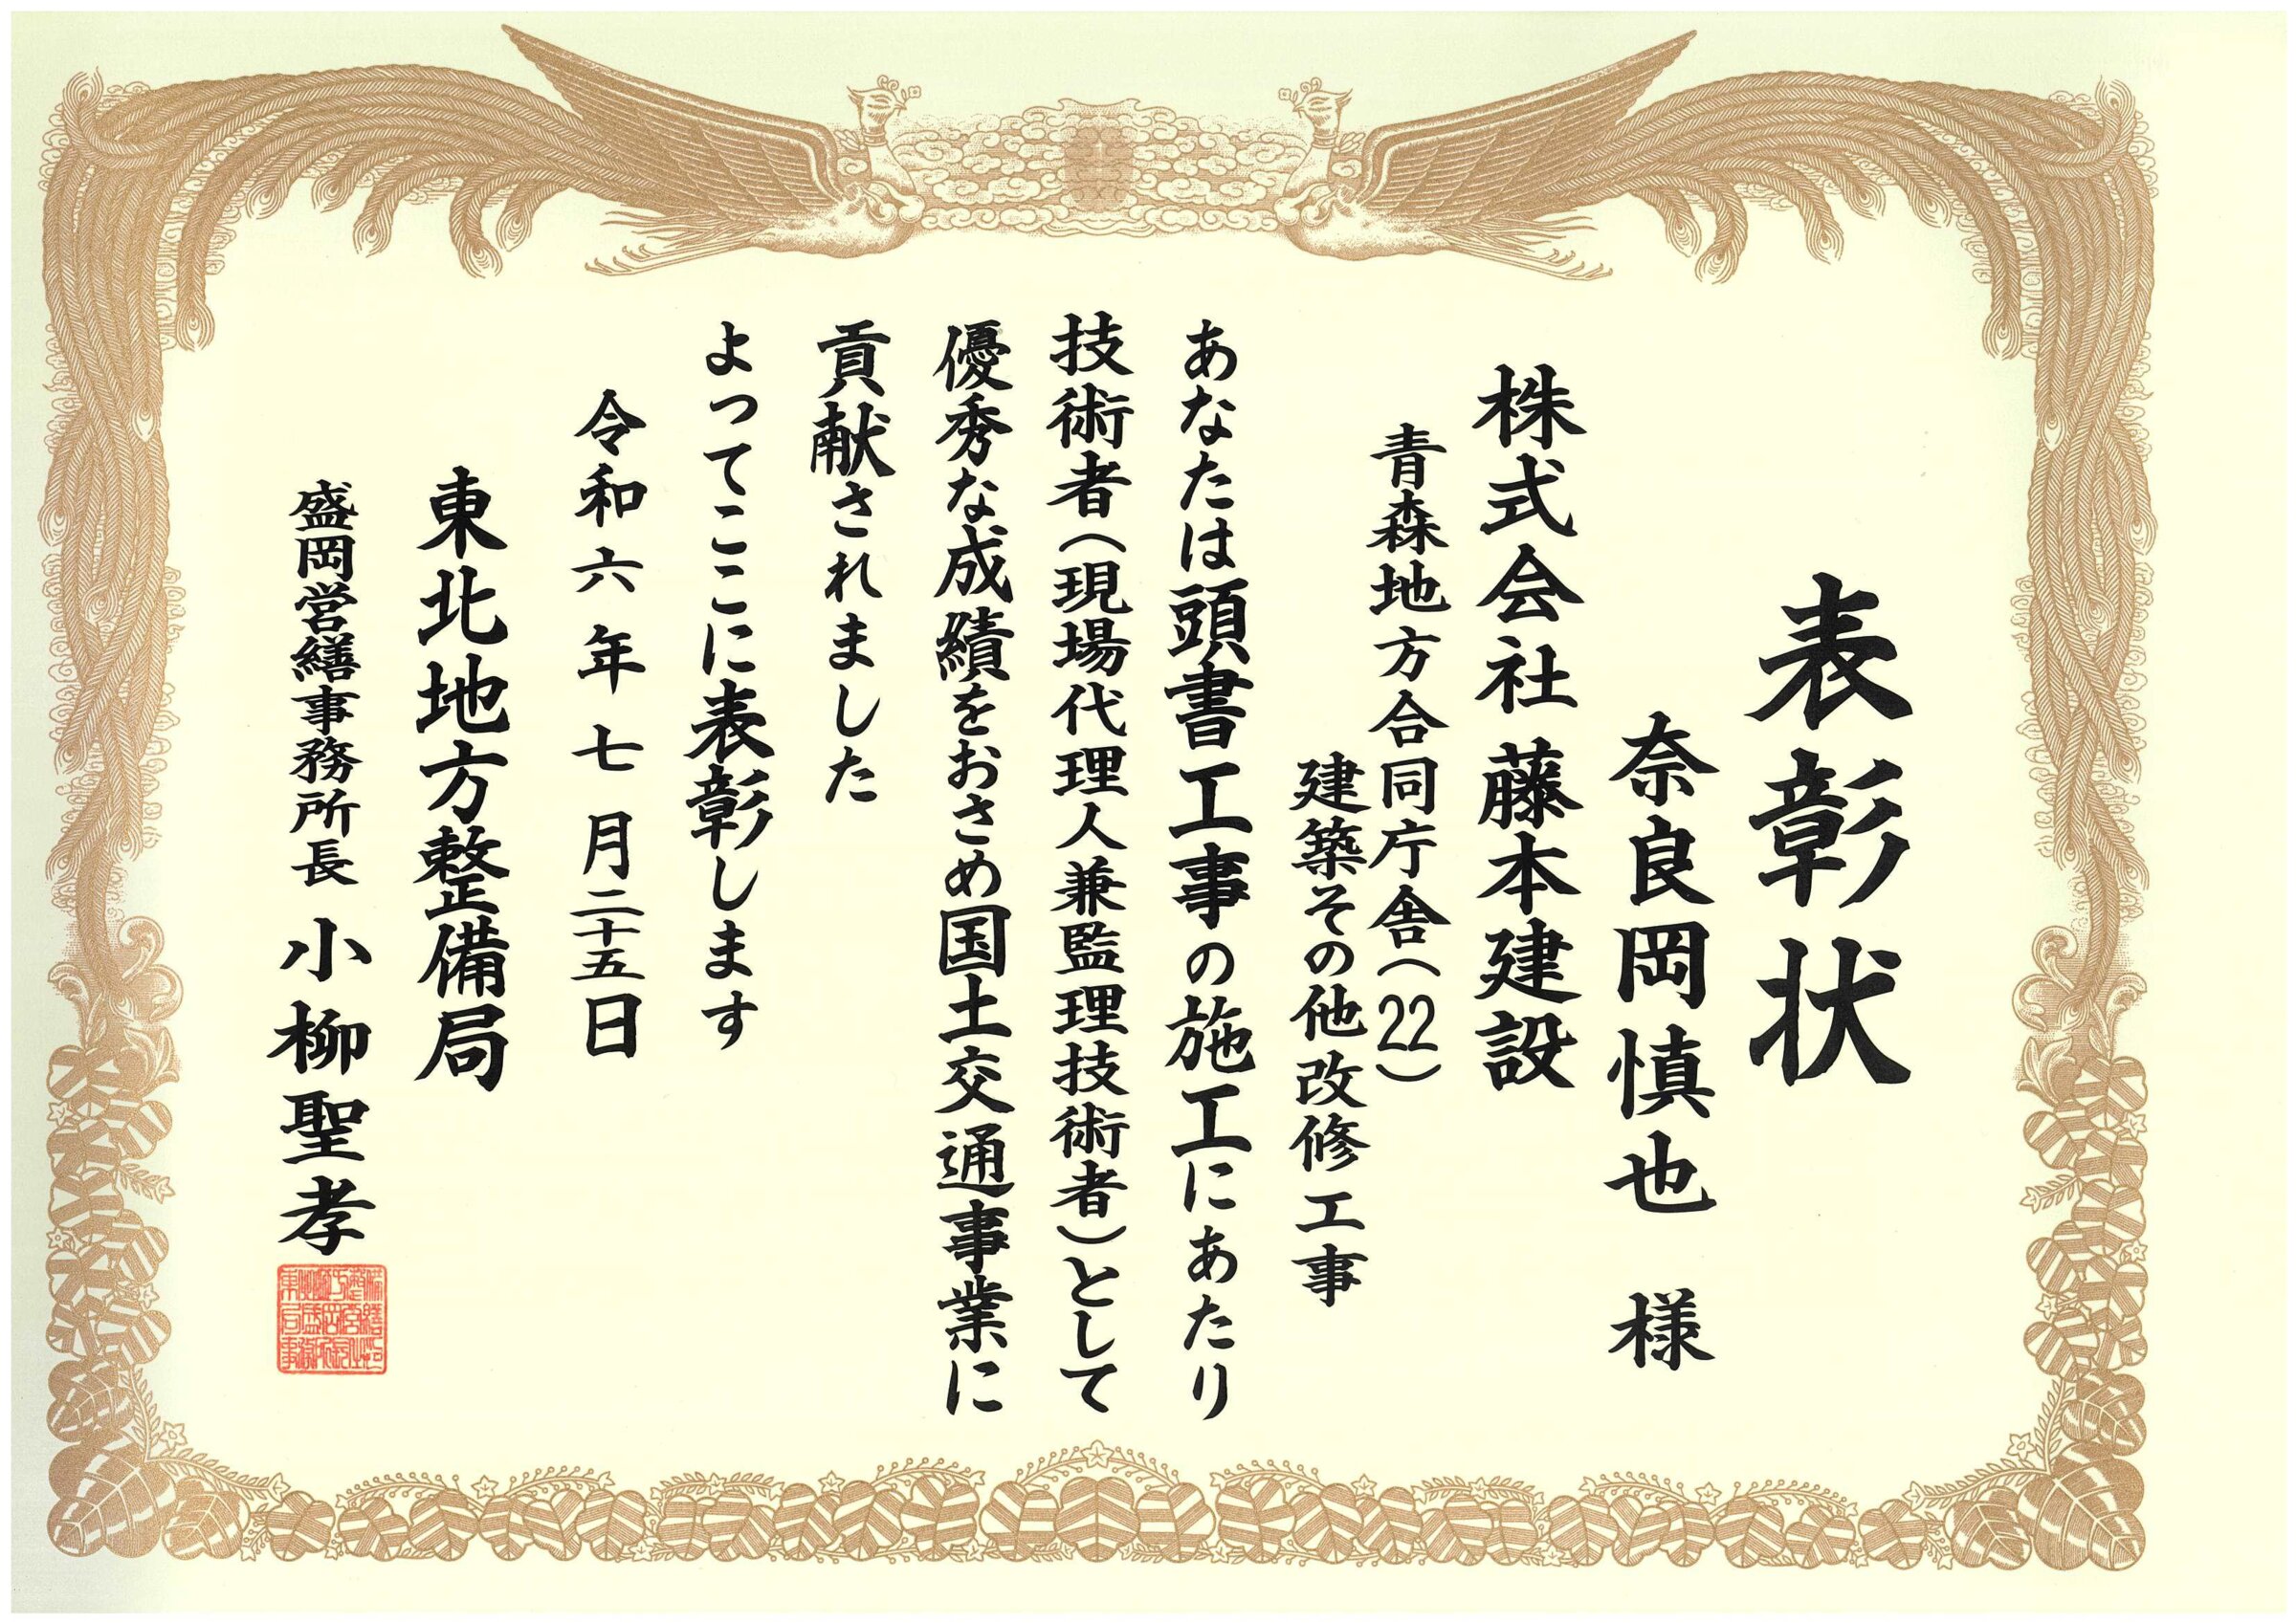 表彰状
奈良岡慎也 様
株式会社 藤本建設
青森地方合同庁舎(22)
建築その他改修工事
あなたは頭書工事の施工にあたり
技術者(現場代理人兼監理技術者)として
優秀な成績をおさめ国土交通事業に
貢献されました
よってここに表彰します
令和六年七月二十五日
東北地方整備局
盛岡営繕事務所長 小柳聖孝